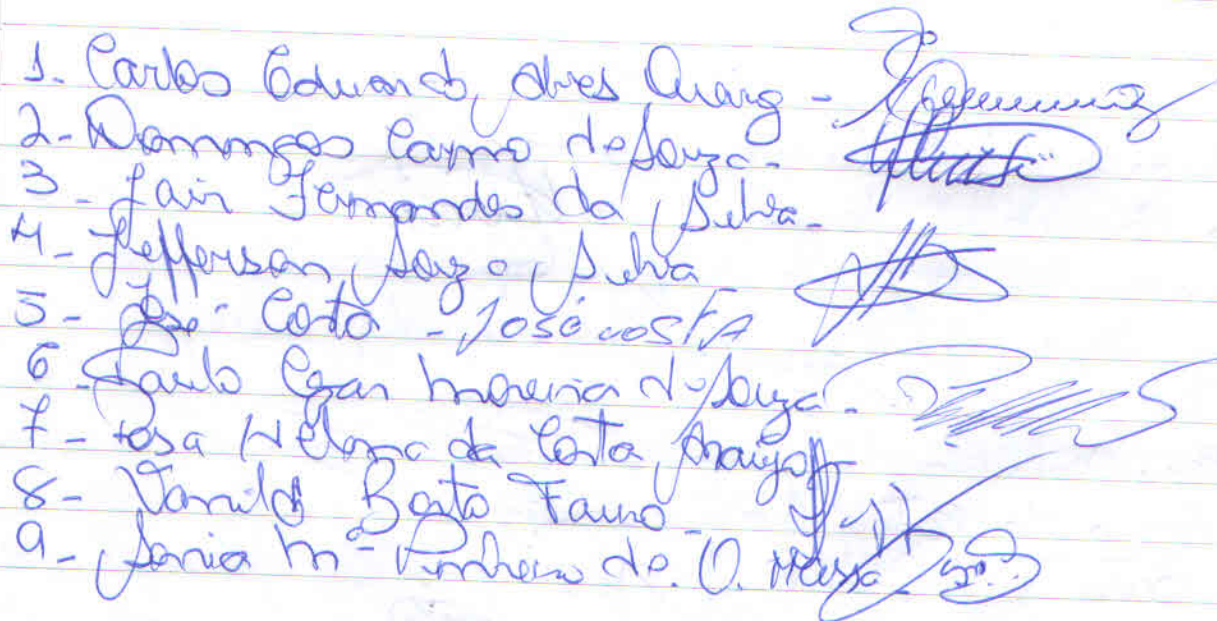 1- Carlos Eduardo Alves
2- Domingos Carmo de Souza-
3- Jair Fernandes da Silva-
4- Jefferson Souza Silva
5- José Costa - José COSTA
6- Paulo Cezar Moreira de Souza-
7- Rosa Heloma da Costa Araújo
8- Vanildo Bento Fauro-
9- Sonia Mª Pinheiro de. O.